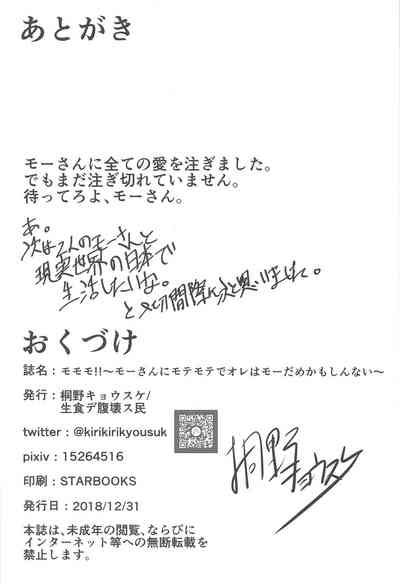 あとがき
モーさんに全ての愛を注ぎました。
でもまだ注ぎ切れていません。
待ってろよ、モーさん。
あ。
次は2人のモーさんと
現実世界の日本で
生活したいな。
と〆切間際に思いました。
おくづけ
誌名：モモモ!!〜モーさんにモテモテでオレはモーだめかもしんない〜
発行：桐野キョウスケ/
生食デ腹壊ス民
twitter：@kirikirikyousuk
pixiv：15264516
印刷：STARBOOKS
発行日：2018/12/31
桐野キョウスケ
本誌は、未成年の閲覧、ならびに
インターネット等への無断転載を
禁止します。